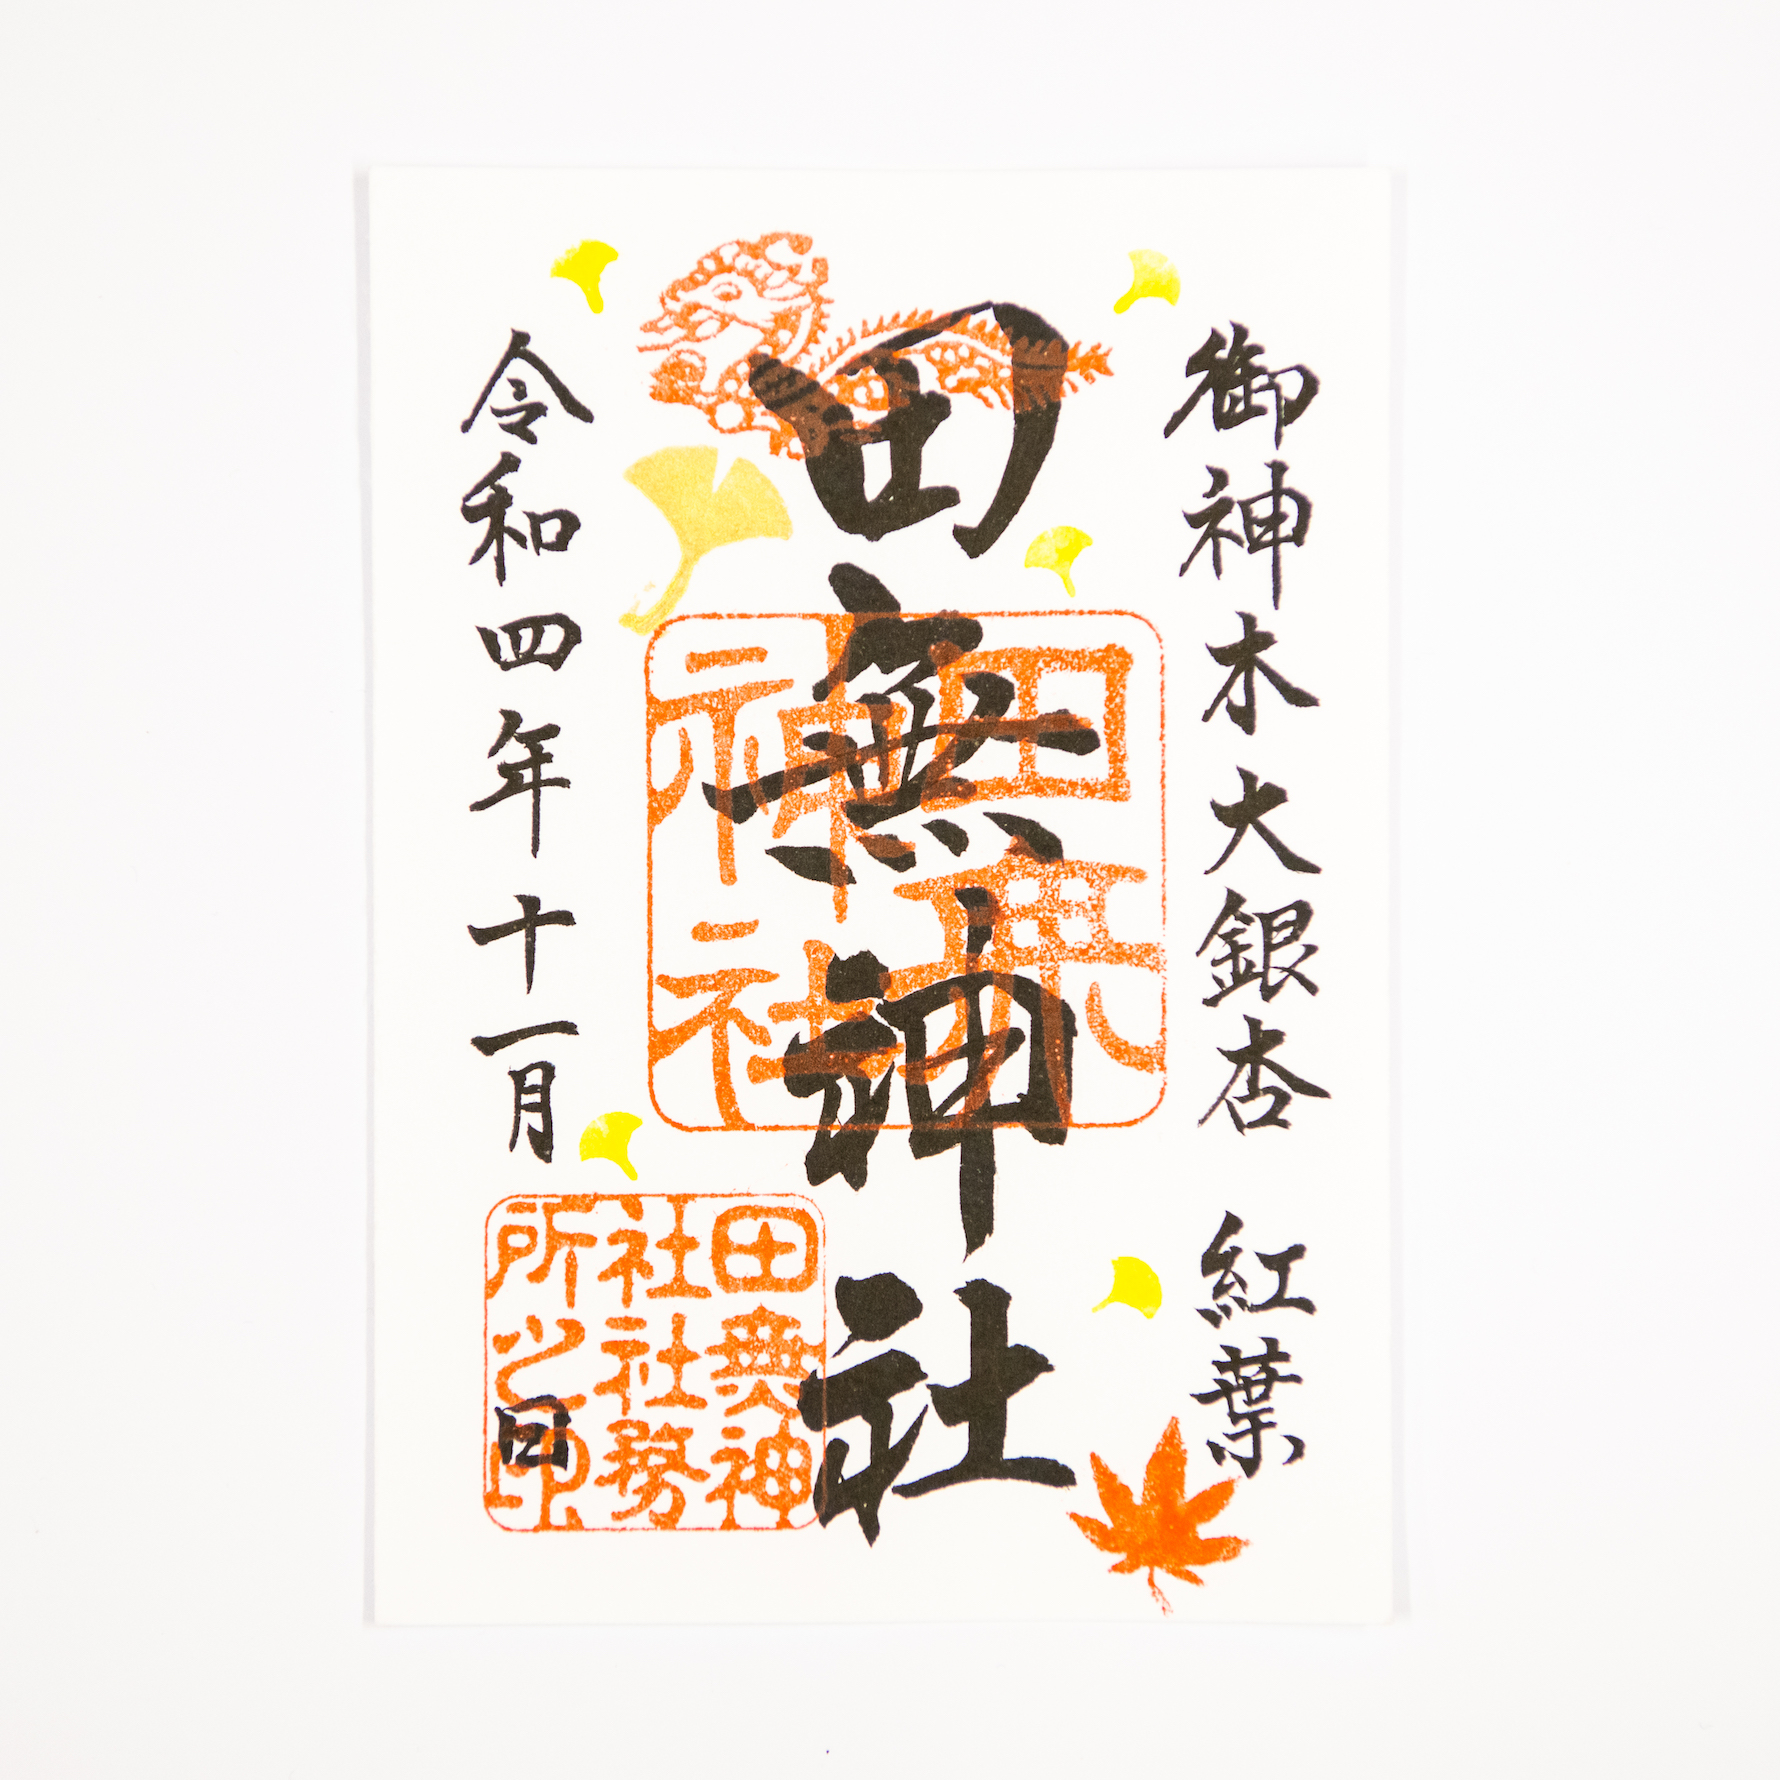 御神木大銀杏 紅葉
田無神社
田無神社
令和四年十一月 日
田無神社社務所之印